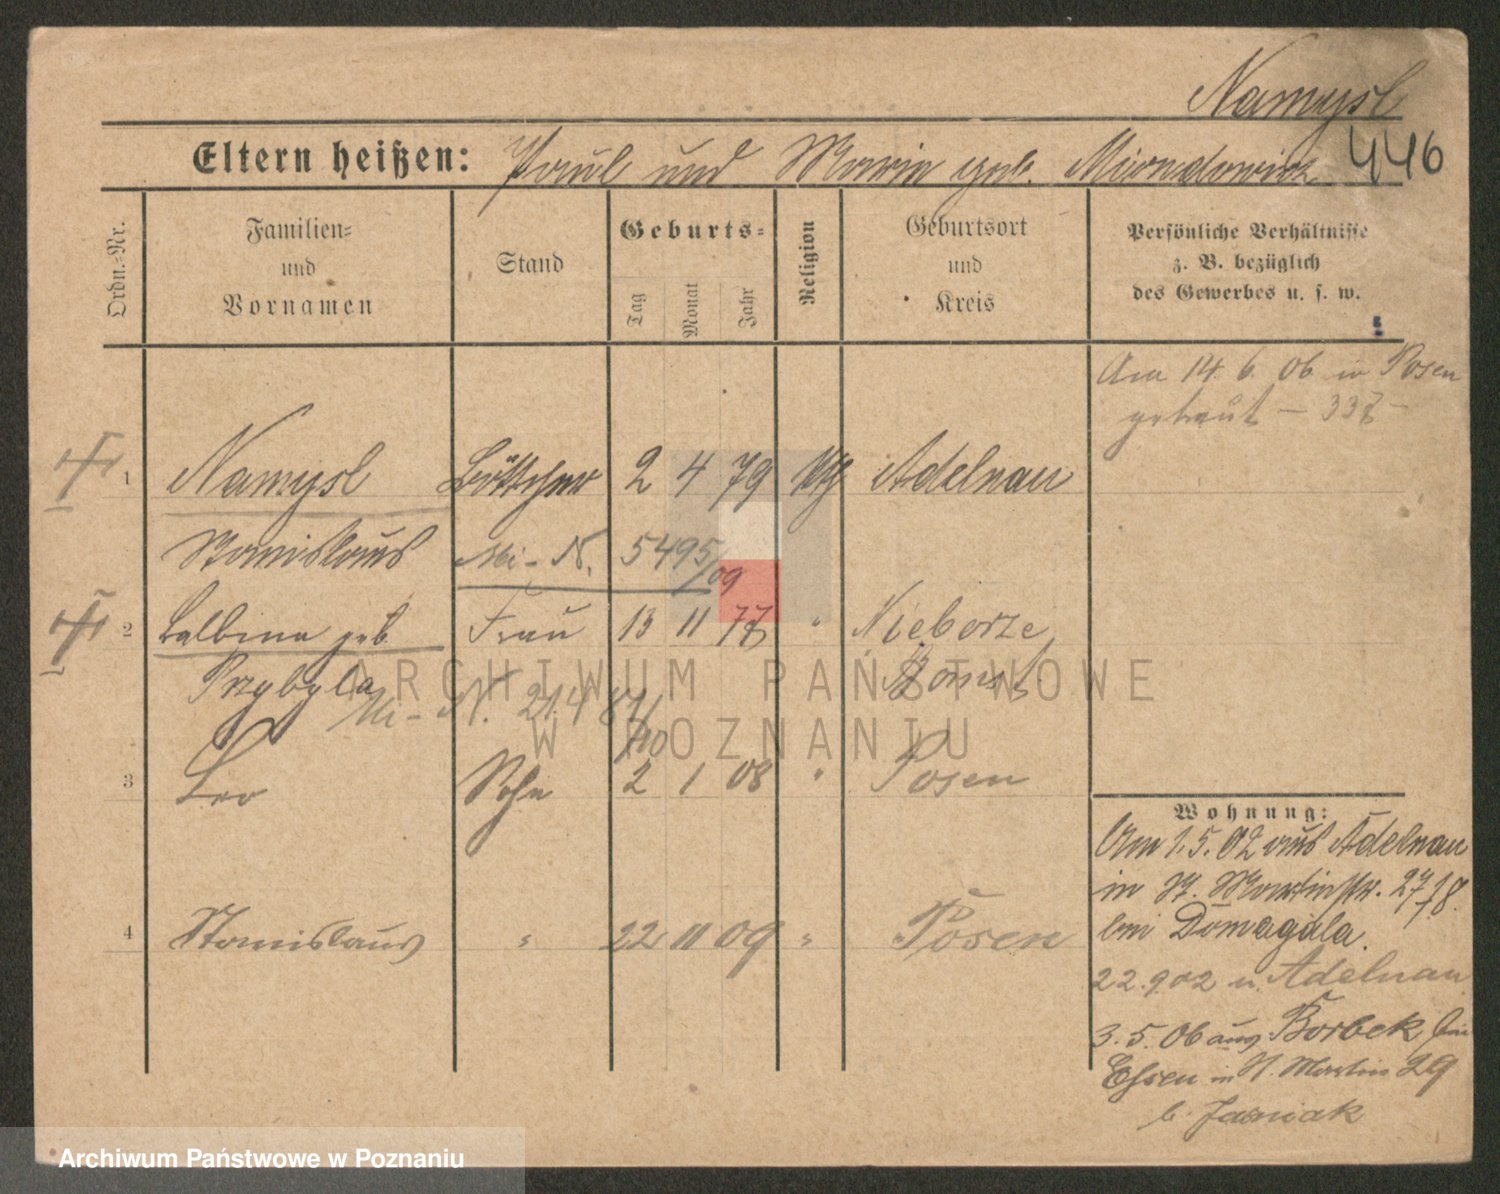 Namysl
446
Eltern heißen: Paul und Maria geb.
Ordn.-Nr.
Familien- und Vornamen
Stand
Geburts-
Tag Monat Jahr
Religion
Geburtsort und Kreis
Persönliche Verhältnisse
z. B. bezüglich
des Gewerbes u. s. w.
Am 14. 6. 06 in Posen
getraut – 338 –
1 Namysl Böttcher 2 4 79 kth Adelnau
Stanislaus Mi-N. 5495/09
2 Balbina geb. Frau 13 11 78 " Nieborze
Przybyla Bomst
Mi-N.
3 Leo Sohn 2 1 08 " Posen
4 Stanislaus " 22 11 09 " Posen
Wohnung:
Am 1.5.02 aus Adelnau
in St. Martinstr. 27
bei Domagala.
22.9.02 n. Adelnau
3.5.06 aus Borbek bei
Essen in St. Martin 29
b. Jasniak
ARCHIWUM PAŃSTWOWE
W POZNANIU
Archiwum Państwowe w Poznaniu